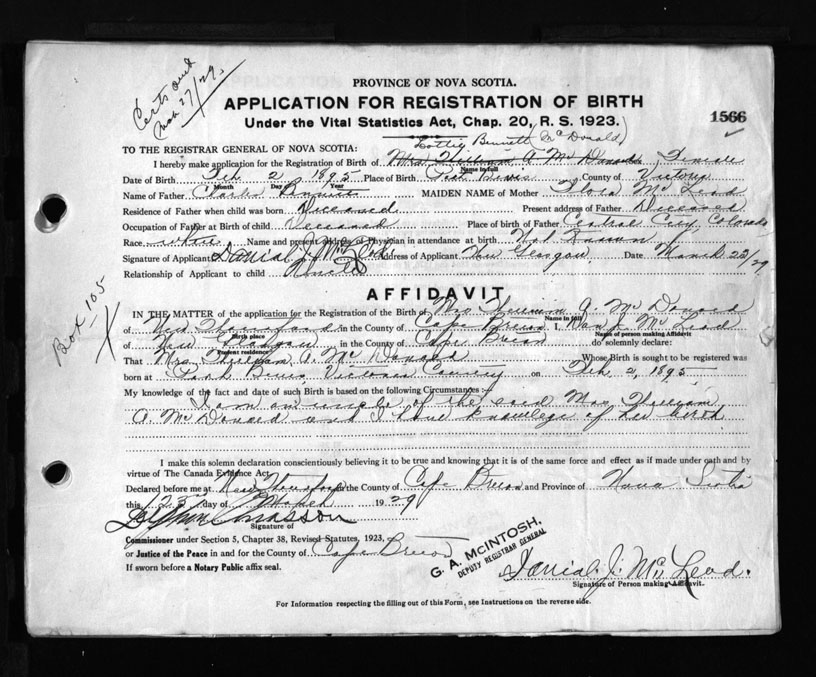 Certs out
Mch 27/29
PROVINCE OF NOVA SCOTIA.
APPLICATION FOR REGISTRATION OF BIRTH
Under the Vital Statistics Act, Chap. 20, R. S. 1923.
1566
Lottie Bennett McDonald
TO THE REGISTRAR GENERAL OF NOVA SCOTIA:
I hereby make application for the Registration of Birth of Mrs William A McDonald, Female
Name in full
Date of Birth Feb 2 1895 Place of Birth County of Victoria
Month Day Year
Name of Father Charles Bennett MAIDEN NAME of Mother Flora McLeod
Residence of Father when child was born Deceased Present address of Father Deceased
Occupation of Father at Birth Deceased Place of birth of Father Central City Colorado
Race white Name and present address of Physician in attendance at birth Not Known
Signature of Applicant Danial J. McLeod Address of Applicant New Glasgow Date March 23/29
Relationship of Applicant to child Uncle
Box 105
AFFIDAVIT
IN THE MATTER of the application for the Registration of the Birth of Mrs William A. McDonald
Name in full
of in the County of Cape Breton I, Dan J. McLeod
Birth place Name of person making Affidavit
of New Glasgow in the County of Cape Breton do solemnly declare:
Present residence
That Mrs. William A. McDonald Whose Birth is sought to be registered was
born at Victoria County on Feb 2, 1895
My knowledge of the fact and date of such Birth is based on the following Circumstances:
I am an uncle of the said Mrs William
A. McDonald and I have knowledge of her birth
I make this solemn declaration conscientiously believing it to be true and knowing that it is of the same force and effect as if made under oath and by
virtue of The Canada Evidence Act.
Declared before me at New in the County of Cape Breton and Province of Nova Scotia
this 23 day of March 1929
Signature of
Commissioner under Section 5, Chapter 38, Revised Statutes, 1923,
or Justice of the Peace in and for the County of Cape Breton
If sworn before a Notary Public affix seal.
G. A. McINTOSH,
DEPUTY REGISTRAR GENERAL
Danial. J. McLeod.
Signature of Person making Affidavit.
For Information respecting the filling out of this Form, see Instructions on the reverse side.